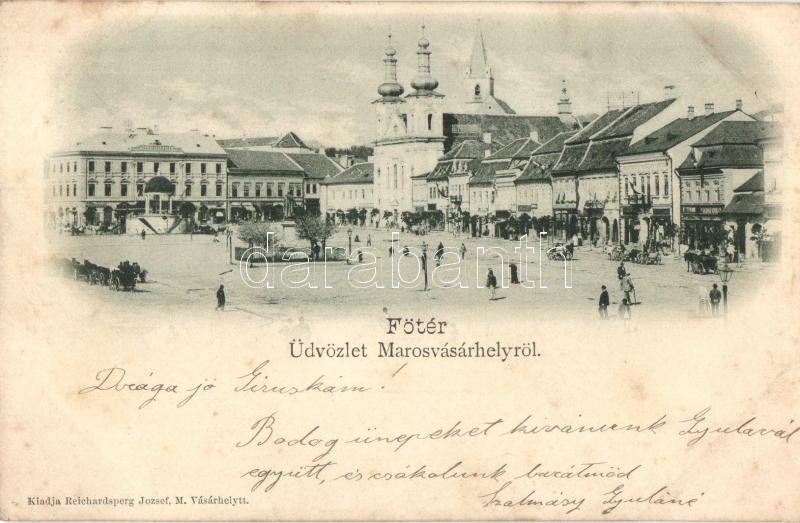 darabanth
Főtér
Üdvözlet Marosvásárhelyről.
Drága jó Giruskám!
Boldog ünnepeket kivánunk Gyulavál
együtt, és csókolunk barátnőd
Szalmásy Gyuláné
Kiadja Reichardsperg Jozsef, M. Vásárhelytt.